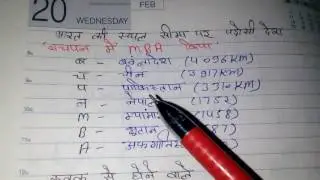 20 WEDNESDAY FEB
भारत की स्थल सीमा पर पड़ोसी देश
बचपन में MBA किया
ब - बांग्लादेश (4096KM)
च - चीन (3917KM)
प - पाकिस्तान (3310KM)
न - नेपाल (1752)
M - म्यांमार (1458)
B - भूटान (587)
A - अफगानि
से होने वाले